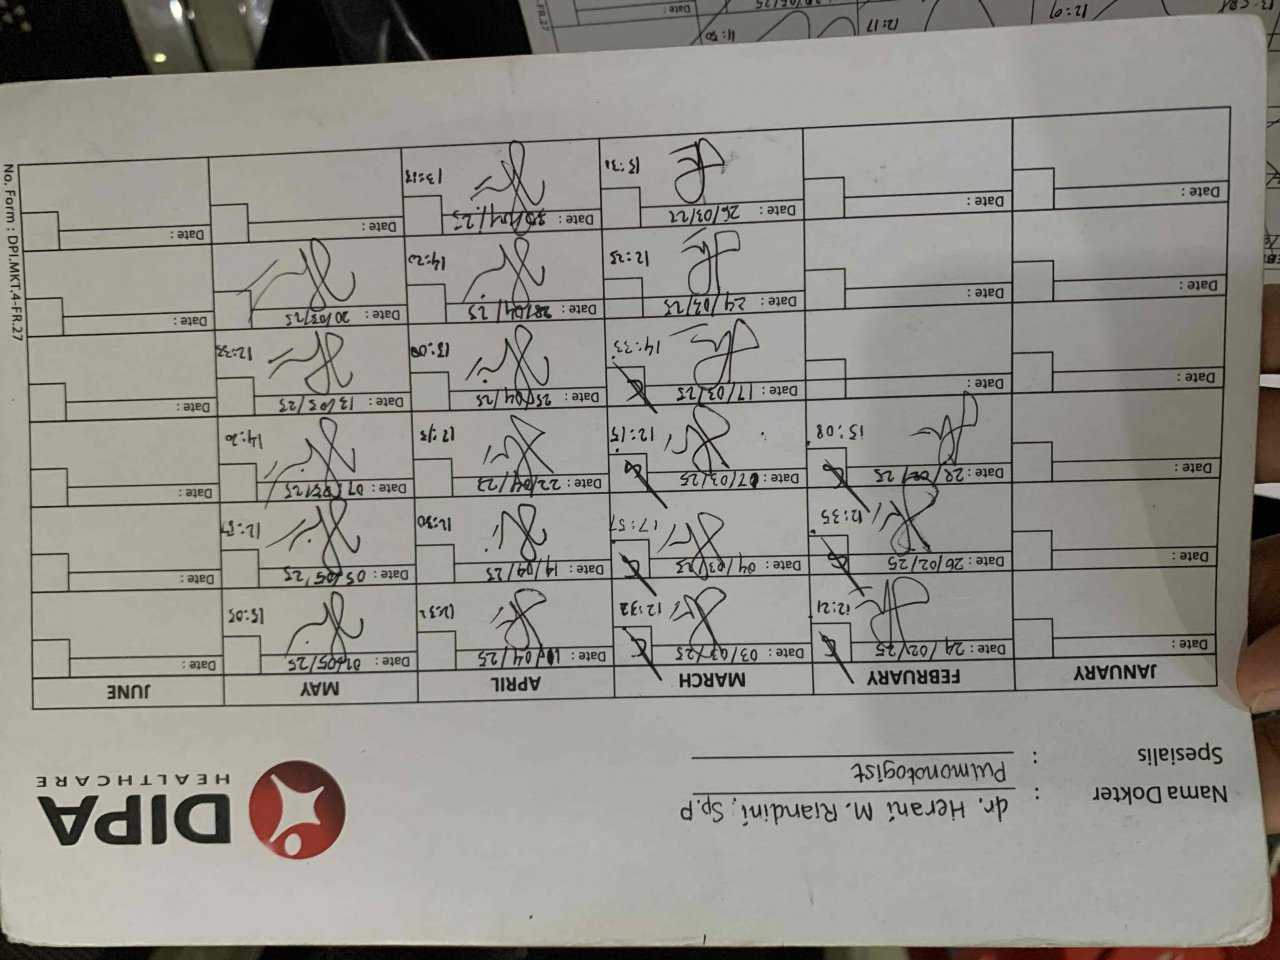 DIPA
HEALTHCARE
Nama Dokter : dr. Herani M. Riandini, Sp.P
Spesialis : Pulmonologist
JANUARY FEBRUARY MARCH APRIL MAY JUNE
Date : Date : 24/02/25 Date : 03/03/25 Date : /04/25 Date : /05/25 Date :
12:21 12:32 12:32 15:05
Date : Date : 26/02/25 Date : 04/03/25 Date : 14/04/25 Date : 05/05/25 Date :
12:35 17:57 12:30 12:57
Date : Date : 28/02/25 Date : 07/03/25 Date : 22/04/25 Date : 07/05/25 Date :
15:08 12:15 14:20
Date : Date : Date : 17/03/25 Date : 25/04/25 Date : 13/05/25 Date :
14:33 13:00 12:33
Date : Date : Date : 24/03/25 Date : 28/04/25 Date : 20/05/25 Date :
12:25 14:20
Date : Date : Date : 26/03/25 Date : 30/04/25 Date : Date :
13:13
No. Form : DPI.MKT.4-FR.27